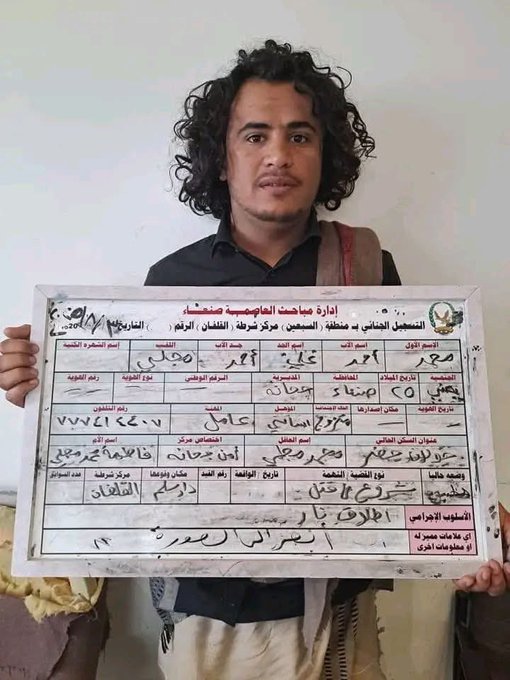 إدارة مباحث العاصمة صنعاء
التسجيل الجنائي بـ منطقة (السبعين) مركز شرطة (القلفان) الرقم ( ) التاريخ ٣ / ٨ /
إسم الأول إسم الأب إسم الجد جد الأب اللقب إسم الشهرة الكنية
محمد أحمد علي أحمد مجلي
الجنسية تاريخ الميلاد المحافظة المديرية الرقم الوطني نوع الهوية رقم الهوية
يمني ٢٥ صنعاء جحانة
تاريخ الهوية مكان إصدارها الحالة الاجتماعية المؤهل المهنة رقم التلفون
متزوج أساسي عامل ٧٧٧٤١٤٤٠٧
عنوان السكن الحالي إسم العاقل اختصاص مركز إسم الأم
محمد مجلي أمن جحانة فاطمة محمد مجلي
وضعه حالياً نوع القضية / التهمة تاريخ / الواقعة رقم القيد مكان وقوعها مركز شرطة عدد السوابق
قتل دار سلم القلفان
الأسلوب الإجرامي اطلاق نار
أي علامات مميزة له أو معلومات أخرى انظر الى الصورة